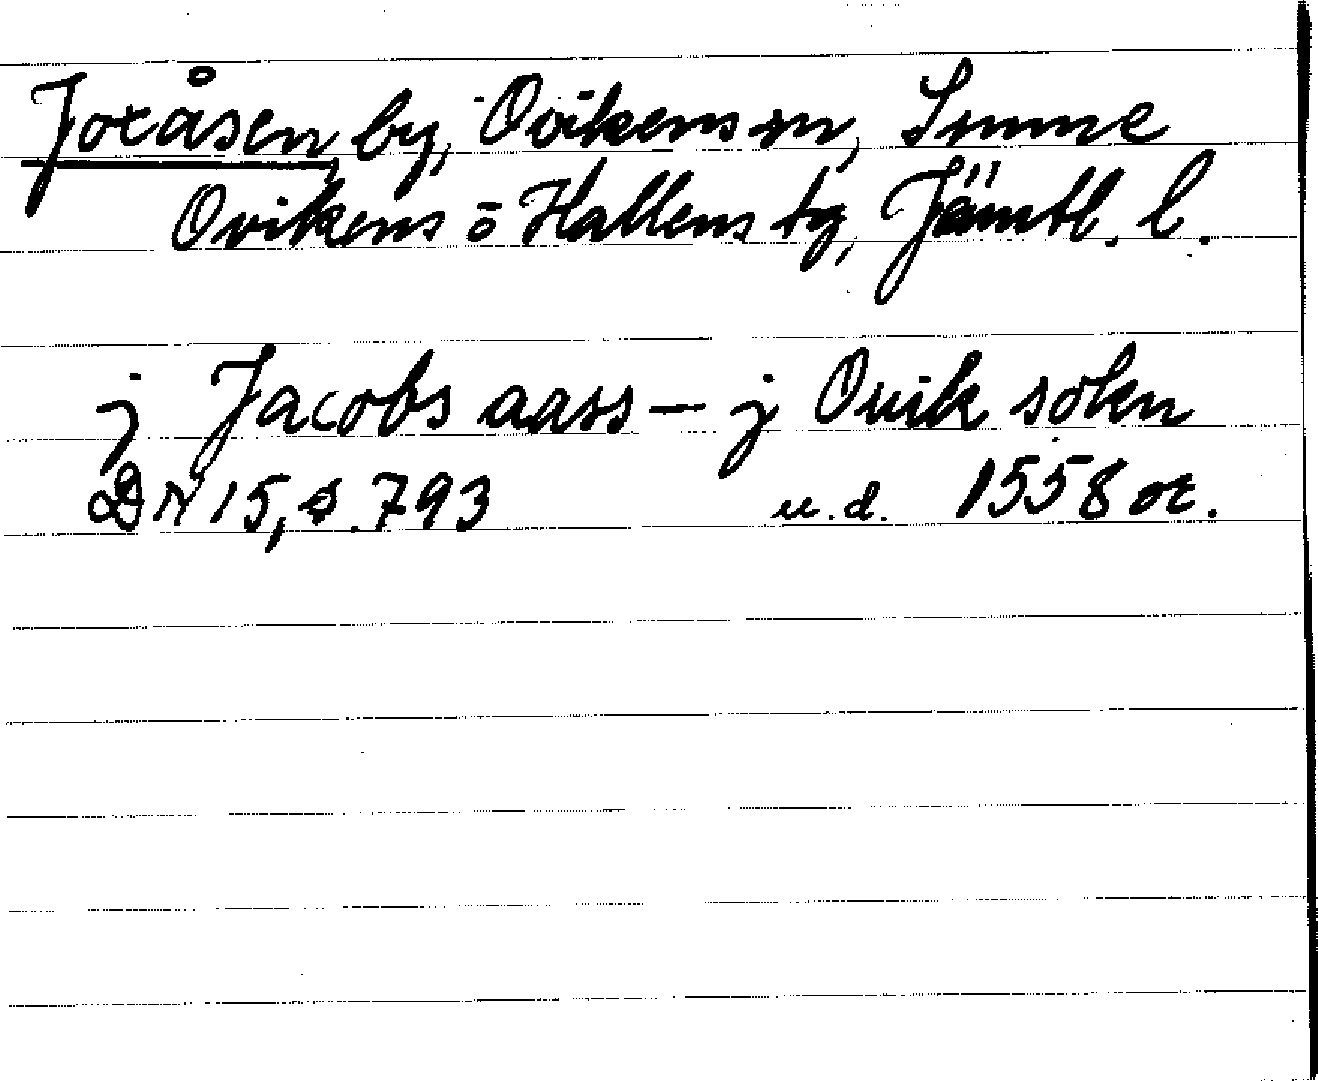 Joxåsen, by, Ovikens sn, Sunne
Ovikens o Hallens tg, Jämtl. l.
j Jacobs aass – j Ouik sokn
DN 15, s. 793 u.d. 1558 or.